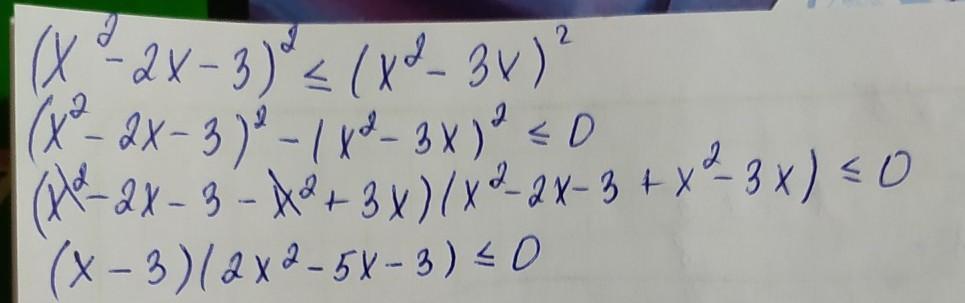 (x² - 2x - 3)² ≤ (x² - 3x)²
(x² - 2x - 3)² - (x² - 3x)² ≤ 0
(x² - 2x - 3 - x² + 3x)(x² - 2x - 3 + x² - 3x) ≤ 0
(x - 3)(2x² - 5x - 3) ≤ 0